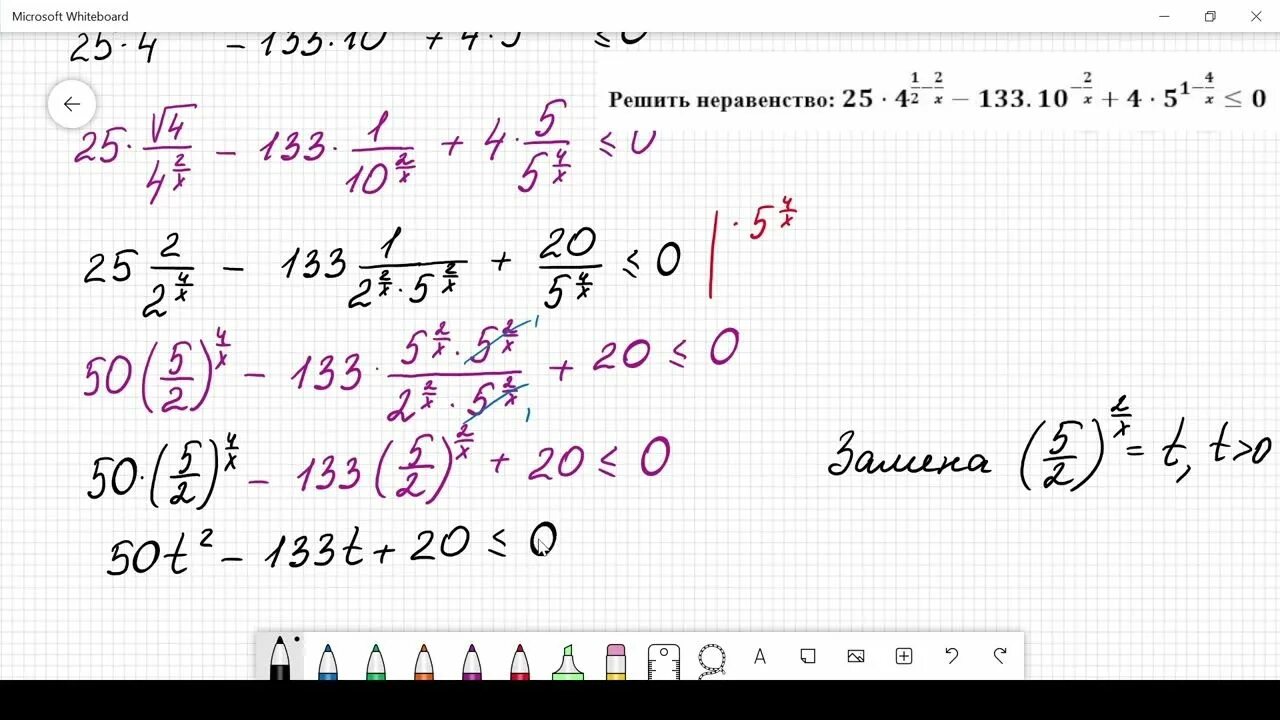 Microsoft Whiteboard
25·4 − 133·10 + 4·5 ≤ 0
Решить неравенство: 25 · 4^(1/2 − 2/x) − 133.10^(−2/x) + 4 · 5^(1 − 4/x) ≤ 0
25 · √4/4^(2/x) − 133 · 1/10^(2/x) + 4 · 5/5^(4/x) ≤ 0
25 2/2^(4/x) − 133 1/(2^(2/x) · 5^(2/x)) + 20/5^(4/x) ≤ 0 | · 5^(4/x)
50 (5/2)^(4/x) − 133 · (5^(2/x) · 5^(2/x))/(2^(2/x) · 5^(2/x)) + 20 ≤ 0
50 · (5/2)^(4/x) − 133 (5/2)^(2/x) + 20 ≤ 0
Замена (5/2)^(2/x) = t, t>0
50t² − 133t + 20 ≤ 0
A